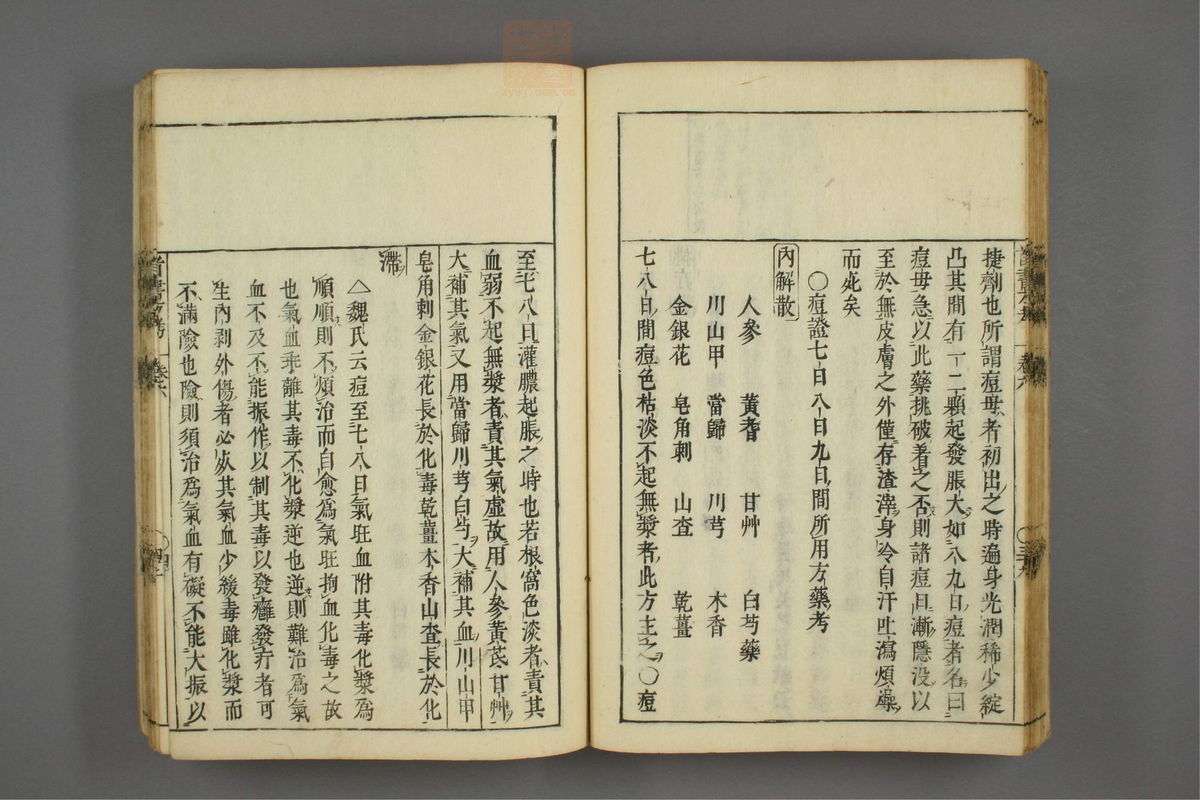 捷劑也所謂痘母者初出之時遍身光潤稀少綻
凸其間有一二顆起發脹大如八九日痘者名曰
痘母急以此藥挑破著之否則諸痘日漸隱没以
至於無皮膚之外僅存渣滓身冷自汗吐瀉煩躁
而死矣
〇痘證七日八日九日間所用方藥考
內解散
人參 黃耆 甘艸 白芍藥
川山甲 當歸 川芎 木香
金銀花 皂角刺 山査 乾薑
七八日間痘色枯淡不起無漿者此方主之〇痘
至七八日灌膿起脹之時也若根窩色淡者責其
血弱不起無漿者責其氣虛故用人參黃茋甘艸
大補其氣又用當歸川芎白芍大補其血川山甲
皂角刺金銀花長於化毒乾薑木香山査長於化
滯
△魏氏云痘至七八日氣旺血附其毒化漿為
順順則不煩治而自愈為氣旺拘血化毒之故
也氣血乖離其毒不化漿逆也逆則難治為氣
血不及不能振作以制其毒以發癰發疔者可
生內剥外傷者必死其氣血少緩毒雖化漿而
不滿險也險則須治為氣血有礙不能大振以
諸書方考 卷六
三十九
四十